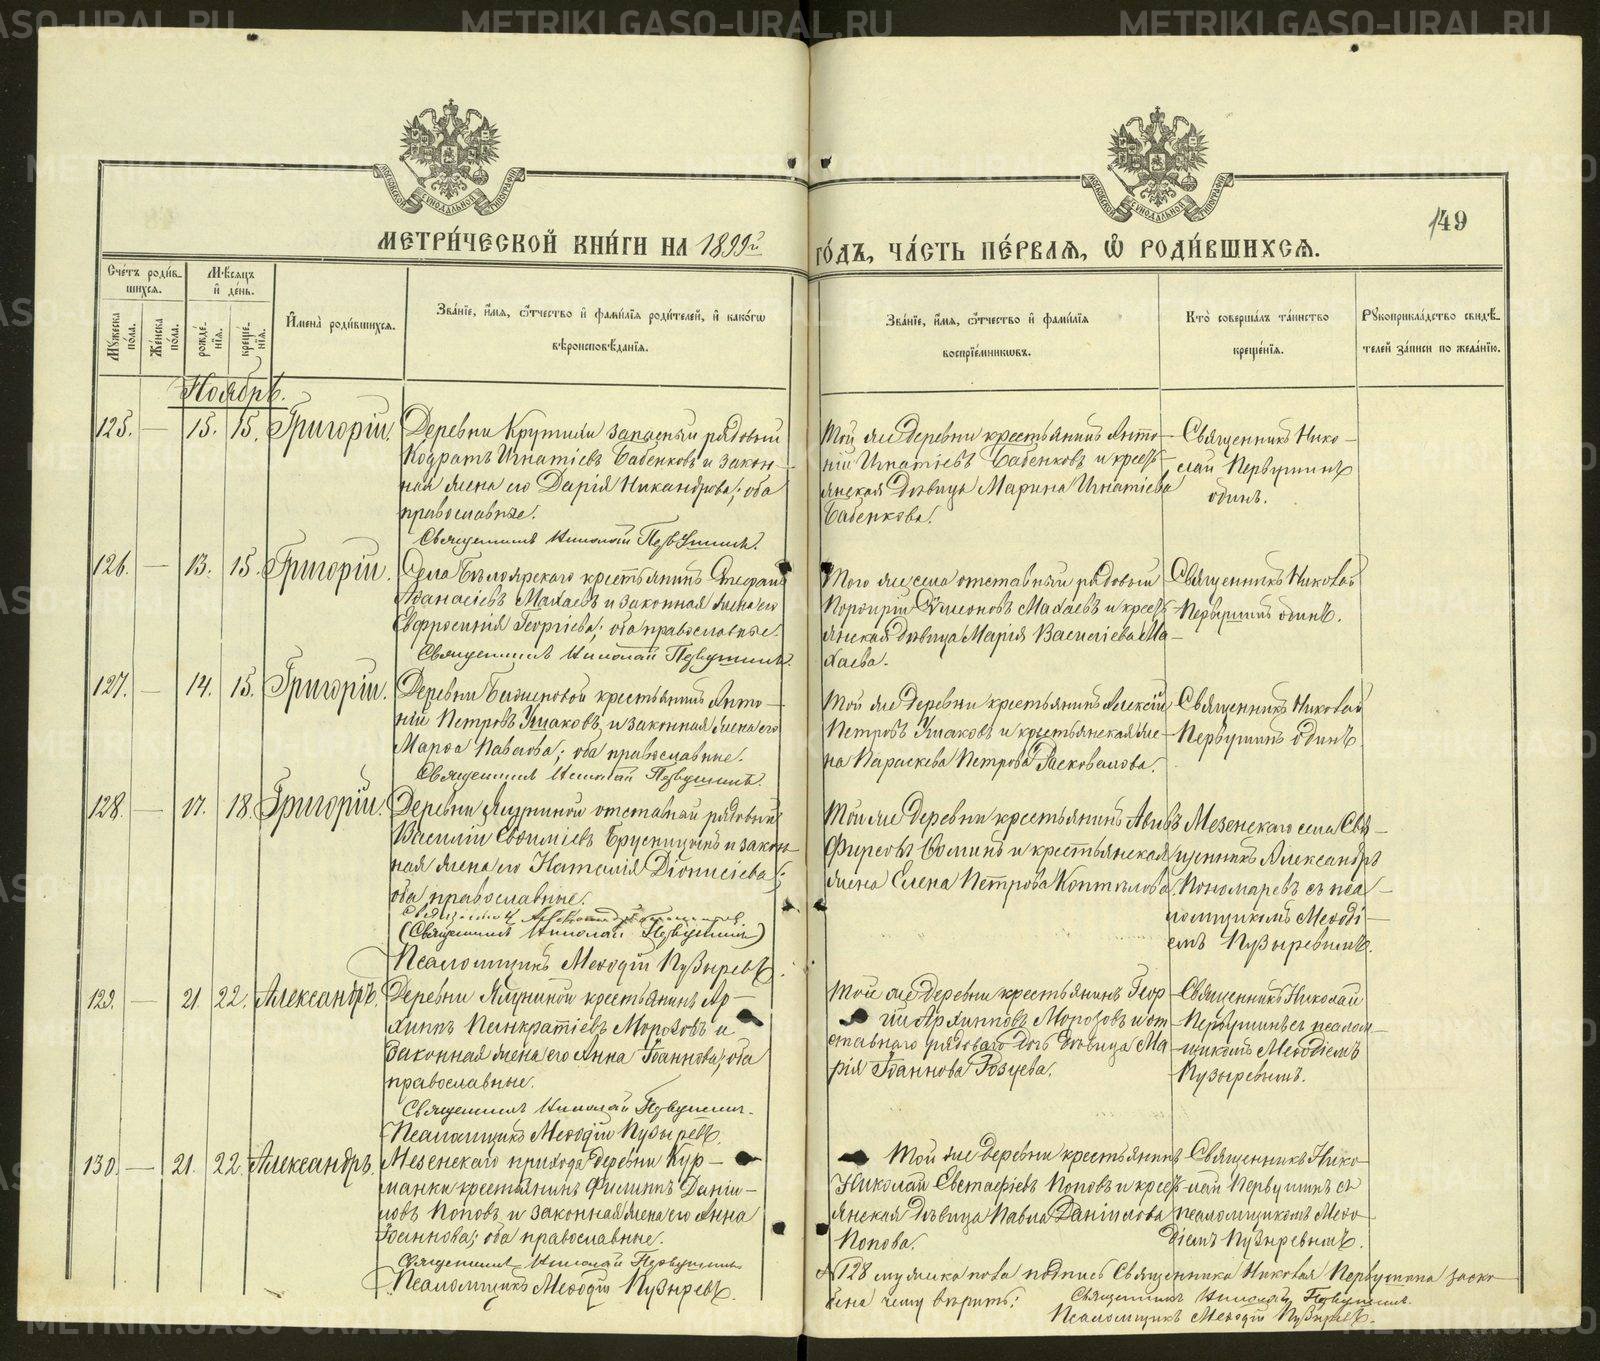 METRIKI.GASO-URAL.RU
МЕТРИ́ЧЕСКОЙ КНИ́ГИ НА 1899й ГО́ДЪ, ЧА́СТЬ ПЕ́РВАЯ, Ѡ РОДИ́ВШИХСЯ.
149
Сче́тъ роди́в-
шихся.
Мѣсяцъ
и де́нь.
Му́жеска по́ла.
Же́нска по́ла.
рожде́нія.
креще́нія.
Имена̀ роди́вшихся.
Зва́ніе, имя, о́тчество и фами́лія роди́телей, и како́гω
вѣроисповѣ́данія.
Зва́ніе, имя, о́тчество и фами́лія
воспріе́мниковъ.
Кто̀ соверша́лъ та́инство
креще́нія.
Рукоприкла́дство свидѣ́-
телей за́писи по жела́нію.
Ноябрь.
125. — 15. 15. Григорій.
Деревни Крутихи запасный рядовый
Кодратъ Игнатіевъ Бабенковъ и закон-
ная жена его Дарія Никандрова; оба
православные.
Священникъ Николай Первушинъ.
Той же деревни крестьянинъ Анто-
ній Игнатіевъ Бабенковъ и кресть-
янская дѣвица Марина Игнатіева
Бабенкова.
Священникъ Нико-
лай Первушинъ
одинъ.
126. — 13. 15. Григорій.
Села Бѣлоярскаго крестьянинъ Стефанъ
Аѳанасіевъ Махаевъ и законная жена его
Евфросинія Георгіева; оба православные.
Священникъ Николай Первушинъ.
Того же села отставный рядовый
Порфирій Симеоновъ Махаевъ и кресть-
янская дѣвица Марія Василіева Ма-
хаева.
Священникъ Николай
Первушинъ одинъ.
127. — 14. 15. Григорій.
Деревни крестьянинъ Анто-
ній Петровъ Ушаковъ и законная жена его
Марѳа Павлова; оба православные.
Священникъ Николай Первушинъ.
Той же деревни крестьянинъ Алексій
Петровъ Ушаковъ и крестьянская же-
на Параскева Петрова
Священникъ Николай
Первушинъ одинъ.
128. — 17. 18. Григорій.
Деревни Ялуниной отставной рядовый
Василій Евѳиміевъ Брусницынъ и закон-
ная жена его Наталія Діонисіева;
оба православные.
Священникъ Александръ Пономаревъ
(Священникъ Николай Первушинъ)
Псаломщикъ Меѳодій Пузыревъ.
Той же деревни крестьянинъ
Фирсовъ Ѳоминъ и крестьянская
жена Елена Петрова Коптѣлова.
Мезенскаго села Свя-
щенникъ Александръ
Пономаревъ съ пса-
ломщикомъ Меѳоді-
емъ Пузыревымъ.
129. — 21. 22. Александръ.
Деревни Ялуниной крестьянинъ Ар-
хиппъ Панкратіевъ Морозовъ и
законная жена его Анна Іоаннова; оба
православные.
Священникъ Николай Первушинъ.
Псаломщикъ Меѳодій Пузыревъ.
Той же деревни крестьянинъ Геор-
гій Архипповъ Морозовъ и от-
ставнаго рядоваго дочь дѣвица Ма-
рія Іоаннова
Священникъ Николай
Первушинъ съ псалом-
щикомъ Меѳодіемъ
Пузыревымъ.
130. — 21. 22. Александръ.
Мезенскаго прихода деревни Кур-
манки крестьянинъ Филиппъ Даніи-
ловъ Поповъ и законная жена его Анна
Іоаннова; оба православные.
Священникъ Николай Первушинъ
Псаломщикъ Меѳодій Пузыревъ.
Той же деревни крестьянинъ
Николай Евстафіевъ Поповъ и кресть-
янская дѣвица Павла Даніилова
Попова.
Священникъ Нико-
лай Первушинъ съ
псаломщикомъ Меѳо-
діемъ Пузыревымъ.
№ 128 мужска пола подпись Священника Николая Первушина заско-
блена чему вѣрить:
Священникъ Николай Первушинъ.
Псаломщикъ Меѳодій Пузыревъ.